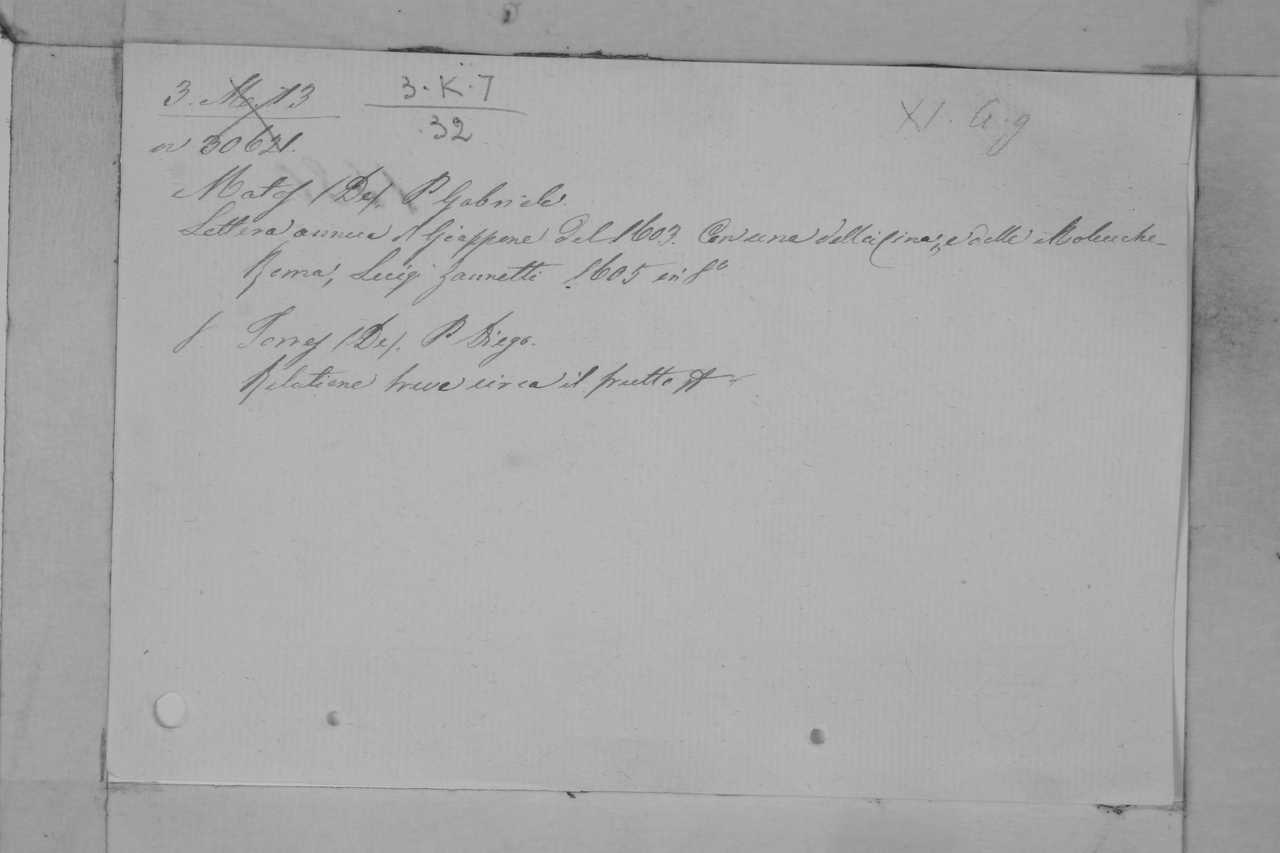 3. M. 13
3. K. 7
32
XI. G. g
30621.
Matos (De). P. Gabriele.
Lettera annua d. Giappone del 1603. Con una della Cina, e delle Molucche.
Roma, Luigi Zannetti 1605 in 8º
Torres (De). P. Diego.
Relatione breve circa il frutto